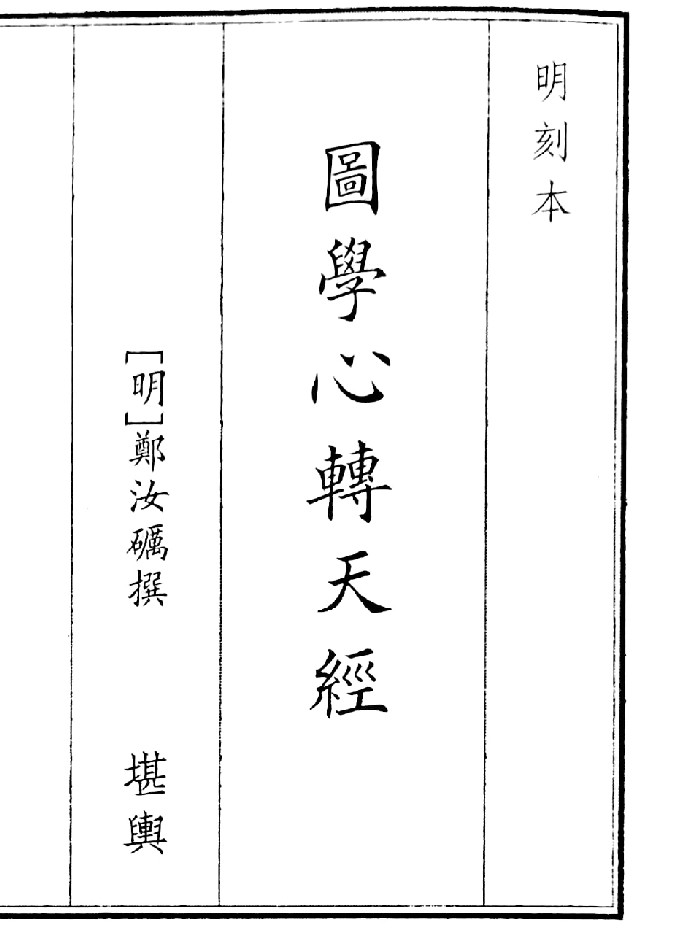 明刻本
圖學心轉天經
[明]鄭汝礪撰
堪輿